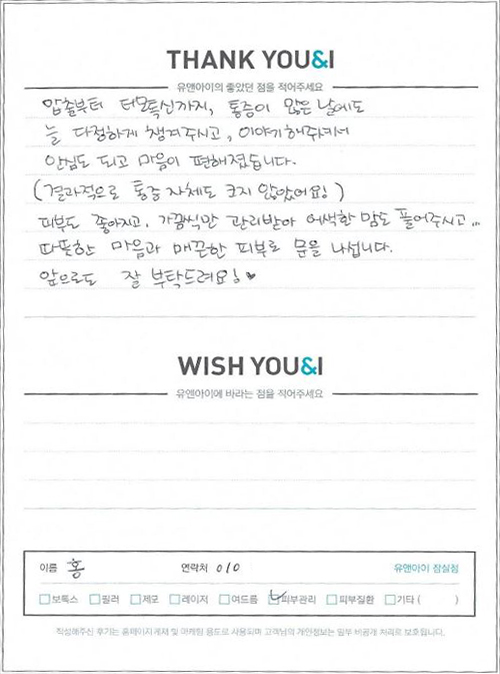 THANK YOU&I
유앤아이의 좋았던 점을 적어주세요
압출부터 더모톡신까지, 통증이 많은 날에도
늘 다정하게 챙겨주시고, 이야기해주셔서
안심도 되고 마음이 편해졌습니다.
(결과적으로 통증 자체도 크지 않았어요!)
피부도 좋아지고, 가끔씩만 관리받아 어색한 맘도 풀어주시고...
따뜻한 마음과 매끈한 피부로 문을 나섭니다.
앞으로도 잘 부탁드려요! ♥
WISH YOU&I
유앤아이에 바라는 점을 적어주세요
이름 홍 연락처 010 유앤아이 잠실점
보톡스 필러 제모 레이저 여드름 피부관리 피부질환 기타 ( )
작성해주신 후기는 홈페이지 게재 및 마케팅 용도로 사용되며 고객님의 개인정보는 일부 비공개 처리로 보호됩니다.